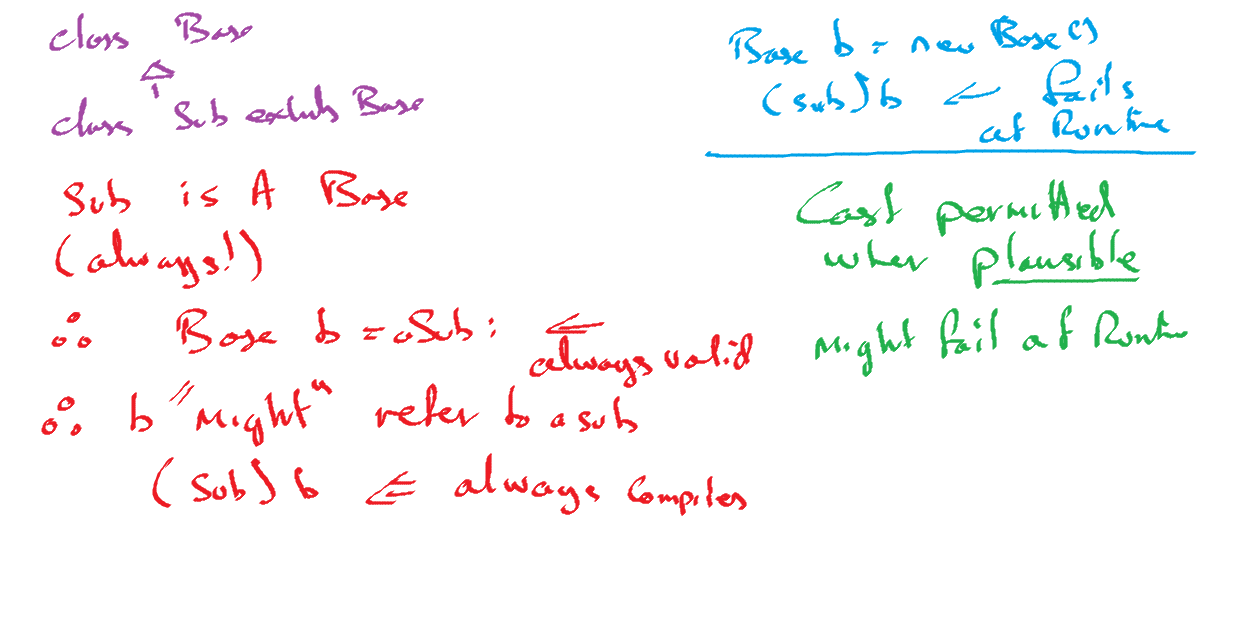 class Base
class Sub extends Base
Sub is A Base
(always!)
∴ Base b = aSub;
⇐ always valid
∴ b "Might" refer to a sub
(Sub)b ⇐ always compiles
Base b = new Base()
(Sub)b ← fails
at Runtime
Cast permitted
when plausible
Might fail at Runtime